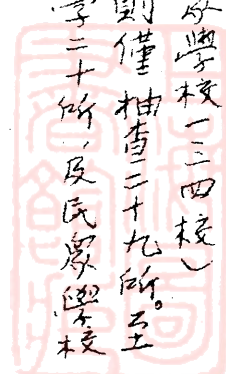 眾學校一三四校）
則僅抽查二十九所。至
學二十所，及民眾學校